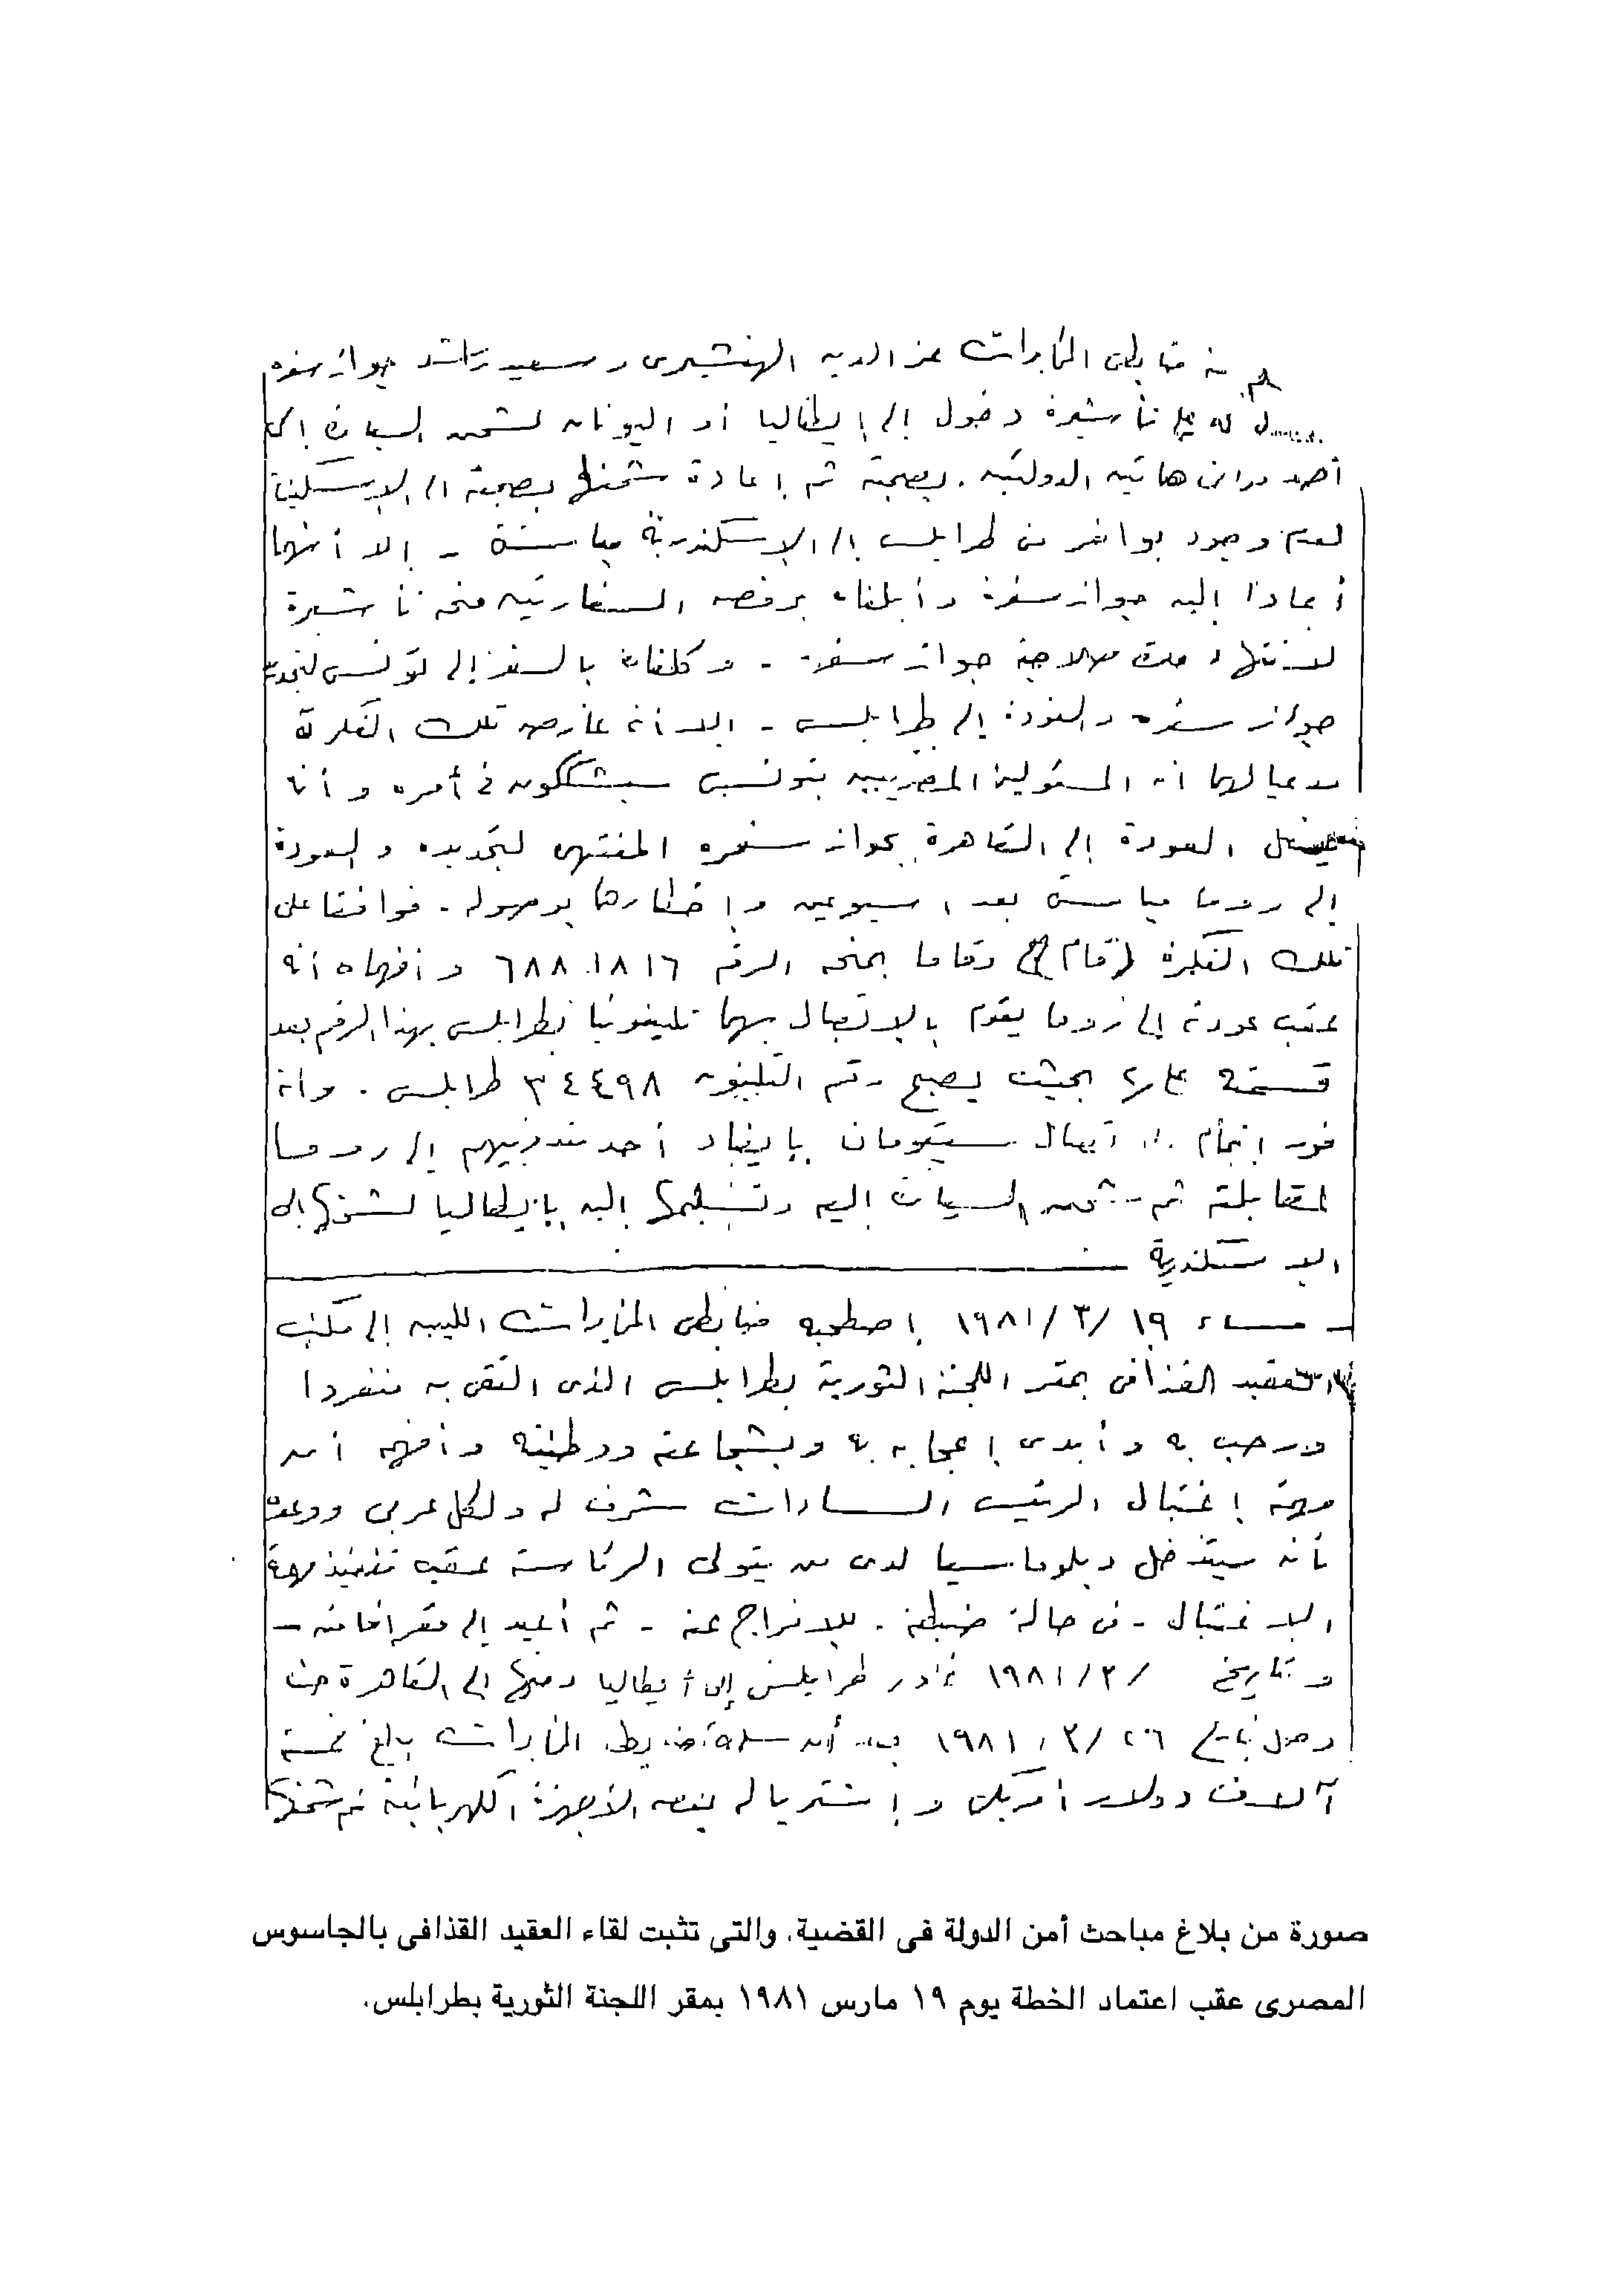 منه ضابطى المخابرات عز الدين الهنشيرى وسعيد راشد جواز سفره
له على تأشيرة دخول إلى إيطاليا أو اليونان لشحن السيارة إلى
أحد موانى هاتين الدولتين بصحبته ثم إعادة شحنها بصحبته إلى الإسكندرية
لعدم وجود بواخر من طرابلس إلى الإسكندرية مباشرة - إلا أنهما
أعادا إليه جواز سفره وأبلغاه برفض السفارتين منحه تأشيرة
لانتهاء مدة صلاحية جواز سفره - وكلفاه بالسفر إلى تونس لتجديد
جواز سفره والعودة إلى طرابلس - إلا أنه عارض تلك الفكرة
مدعيا لهما أن المسئولين المصريين بتونس سيشككون فى أمره وأنه
يفضل العودة إلى القاهرة بجواز سفره المنتهى لتجديده والعودة
إلى روما مباشرة بعد اسبوعين وإخطارهما بوصوله - فوافقا على
تلك الفكرة وقاما بمنحه الرقم ٦٨٨٠١٨١٦ وأفهماه أنه
عقب عودته إلى روما يقوم بالإتصال بهما تليفونيا بطرابلس بهذا الرقم بعد
قسمته على ٢ بحيث يصبح رقم التليفون ٣٤٤٩٨ طرابلس . وأنه
فور إتمام الإتصال سيقومان بإيفاد أحد مندوبيهم إلى روما
لمقابلته ثم شحن السيارة إليه وتسليمها إليه بإيطاليا لشحنها إلى
الاسكندرية
- مساء ١٩ /٣/ ١٩٨١ إصطحبه ضابطى المخابرات الليبيه إلى مكتب
العقيد القذافى بمقر اللجنة الثورية بطرابلس الذى التقى به منفردا
ورحب به وأبدى إعجابه به وبشجاعته ووطنيته وأفهمه أن
مهمة إغتيال الرئيس السادات شرف له ولكل عربى ووعده
بأنه سيتدخل دبلوماسيا لدى من يتولى الرئاسة عقب تنفيذ مهمة
الاغتيال - فى حالة ضبطه - للافراج عنه - ثم أعيد إلى مقر اقامته -
وبتاريخ / ١٩٨١/٣ غادر طرابلس إلى إيطاليا ومنها إلى القاهرة حيث
وصل بتاريخ ٢٦ /٣/ ١٩٨١ بعد أن سلمه ضابطى المخابرات مبلغ خمسة
آلاف دولار أمريكى وإشتريا له بعض الأجهزة الكهربائية تم شحنها
صورة من بلاغ مباحث أمن الدولة فى القضية، والتى تثبت لقاء العقيد القذافى بالجاسوس
المصرى عقب اعتماد الخطة يوم ١٩ مارس ١٩٨١ بمقر اللجنة الثورية بطرابلس.